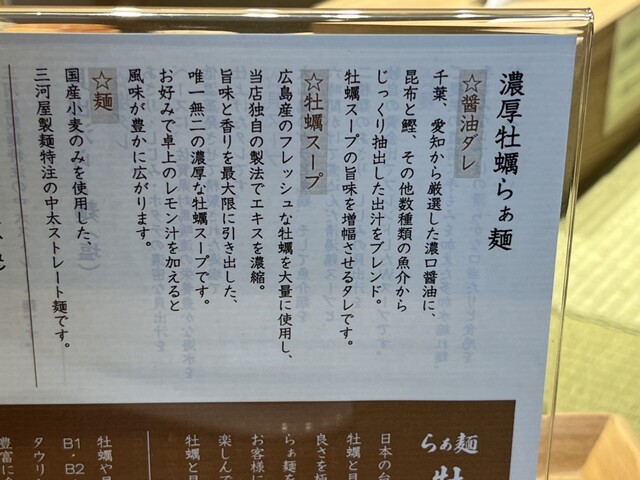 濃厚牡蠣らぁ麺
☆醤油ダレ
千葉、愛知から厳選した濃口醤油に、
昆布と鰹、その他数種類の魚介から
じっくり抽出した出汁をブレンド。
牡蠣スープの旨味を増幅させるタレです。
☆牡蠣スープ
広島産のフレッシュな牡蠣を大量に使用し、
当店独自の製法でエキスを濃縮。
旨味と香りを最大限に引き出した、
唯一無二の濃厚な牡蠣スープです。
お好みで卓上のレモン汁を加えると
風味が豊かに広がります。
☆麺
国産小麦のみを使用した、
三河屋製麺特注の中太ストレート麺です。
らぁ麺 牡
日本の台
牡蠣と貝
良さを極
らぁ麺を
お客様に
楽しんで
牡蠣と貝
牡蠣や貝
B1・B2
タウリン
豊富に含